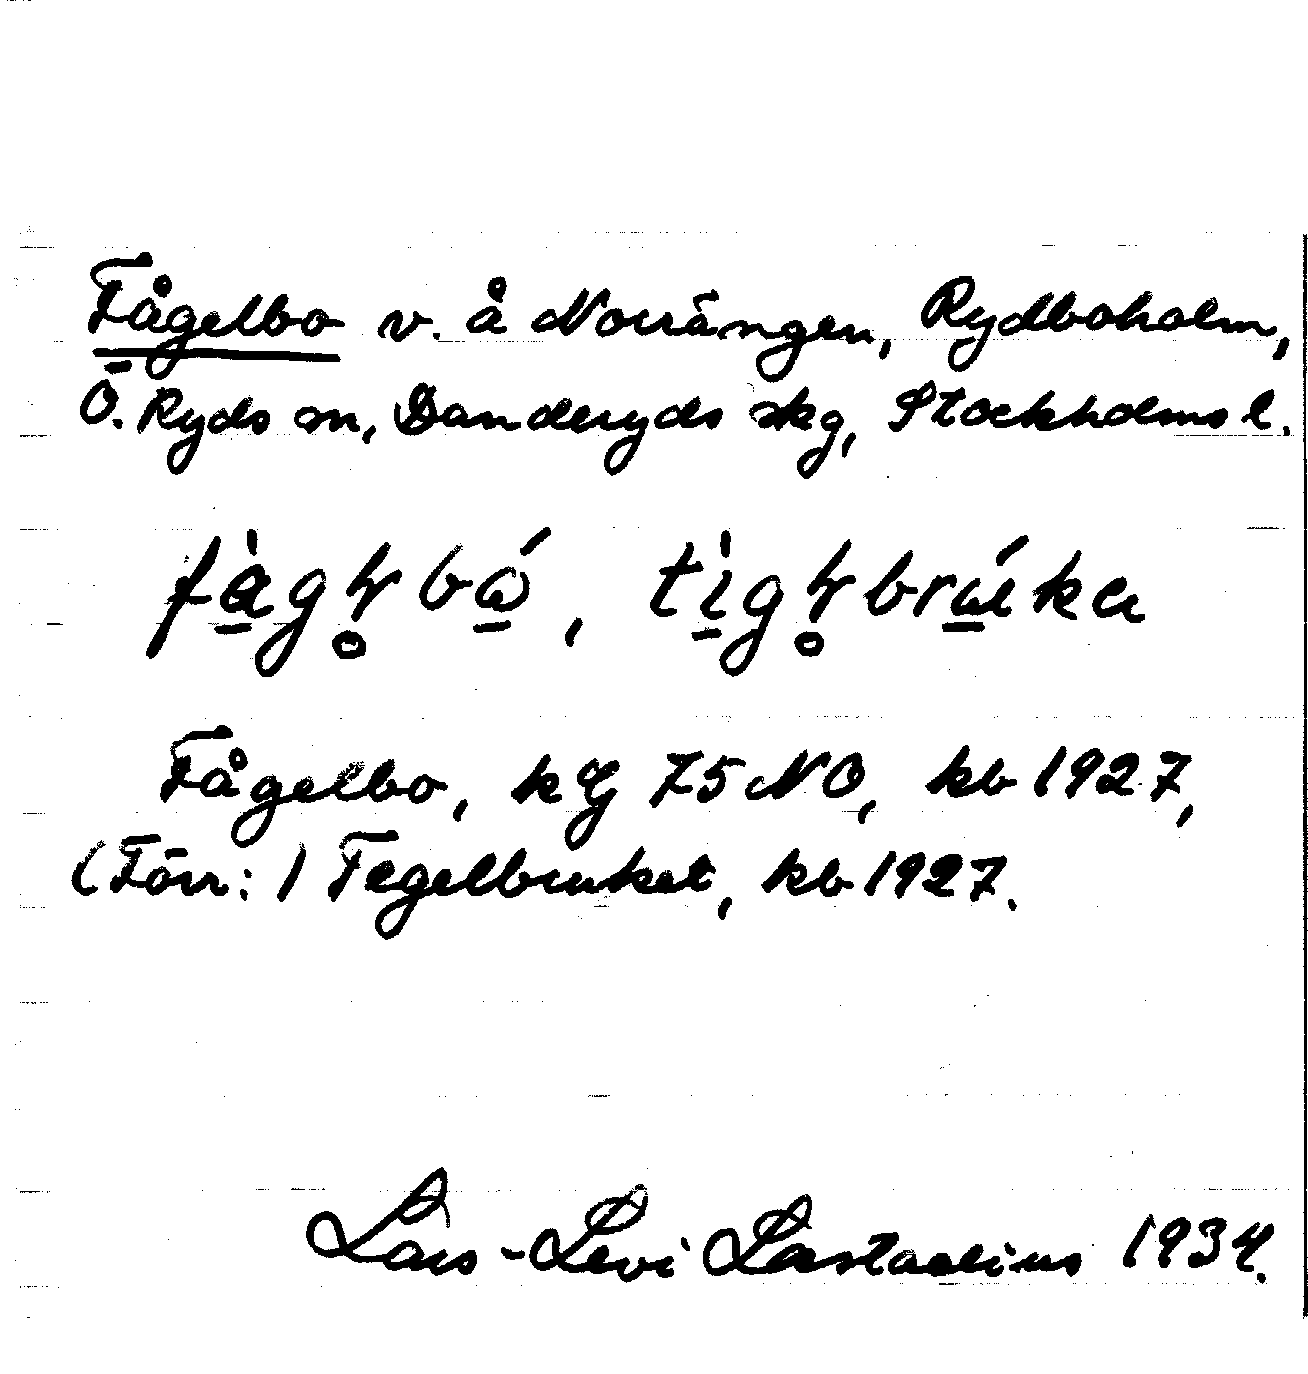 Fågelbo v. å Norrängen, Rydboholm,
Ö. Ryds sn, Danderyds skg, Stockholms l.
Fågelbo, kg 75 NO, kb 1927,
(Förr:) Tegelbruket, kb 1927.
Lars-Levi Læstadius 1934.